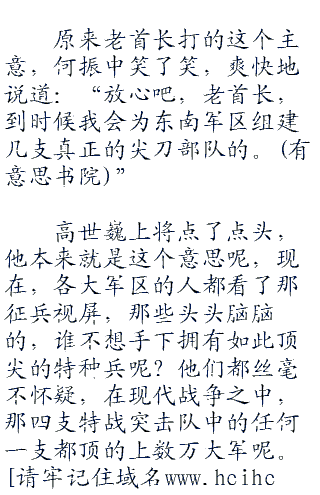 原来老首长打的这个主
意，何振中笑了笑，爽快地
说道：“放心吧，老首长，
到时候我会为东南军区组建
几支真正的尖刀部队的。(有
意思书院)”
高世巍上将点了点头，
他本来就是这个意思呢，现
在，各大军区的人都看了那
征兵视屏，那些头头脑脑
的，谁不想手下拥有如此顶
尖的特种兵呢？他们都丝毫
不怀疑，在现代战争之中，
那四支特战突击队中的任何
一支都顶的上数万大军呢。
[请牢记住域名www.hcihc